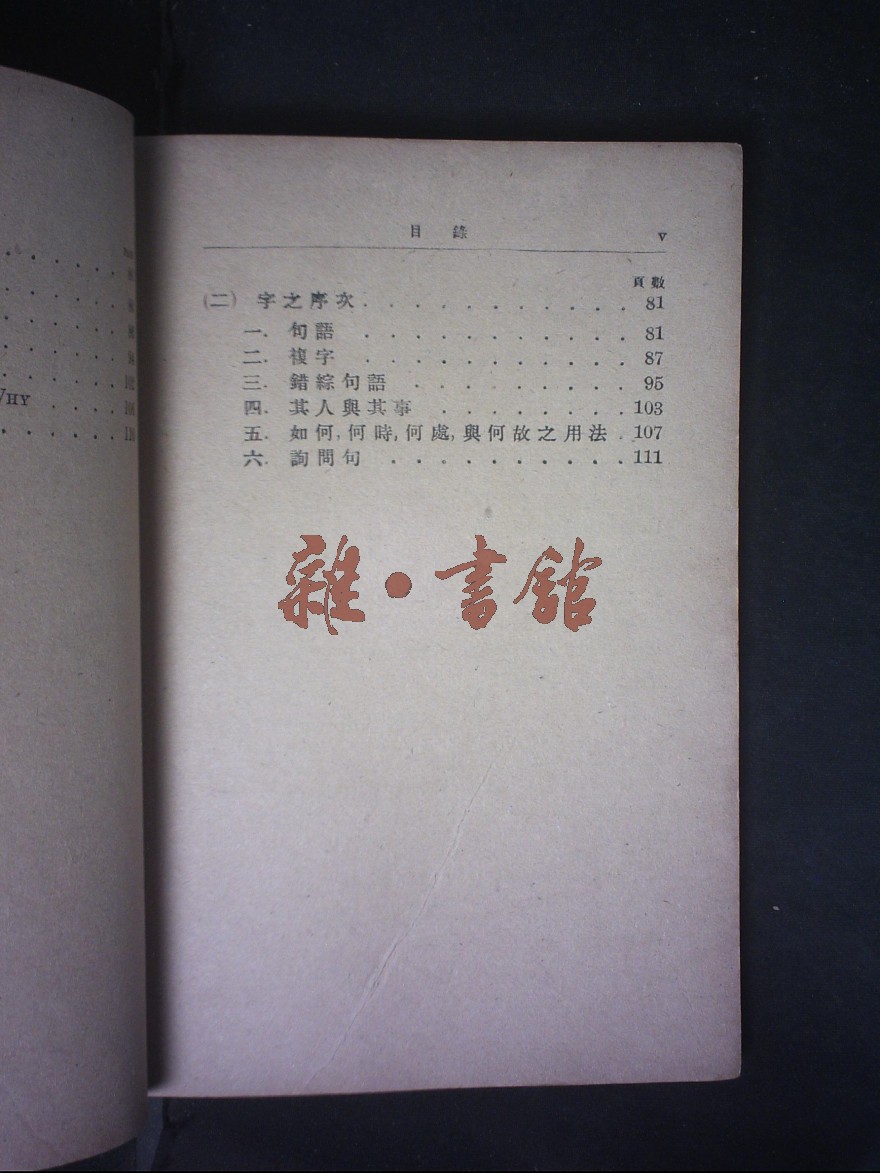 HY
目錄 v
頁數
(二) 字之序次 . . . . . . . . . . . 81
一. 句語 . . . . . . . . . . . 81
二. 複字 . . . . . . . . . . . 87
三. 錯綜句語 . . . . . . . . . 95
四. 其人與其事 . . . . . . . . 103
五. 如何,何時,何處,與何故之用法 . 107
六. 詢問句 . . . . . . . . . . 111
雜•書館